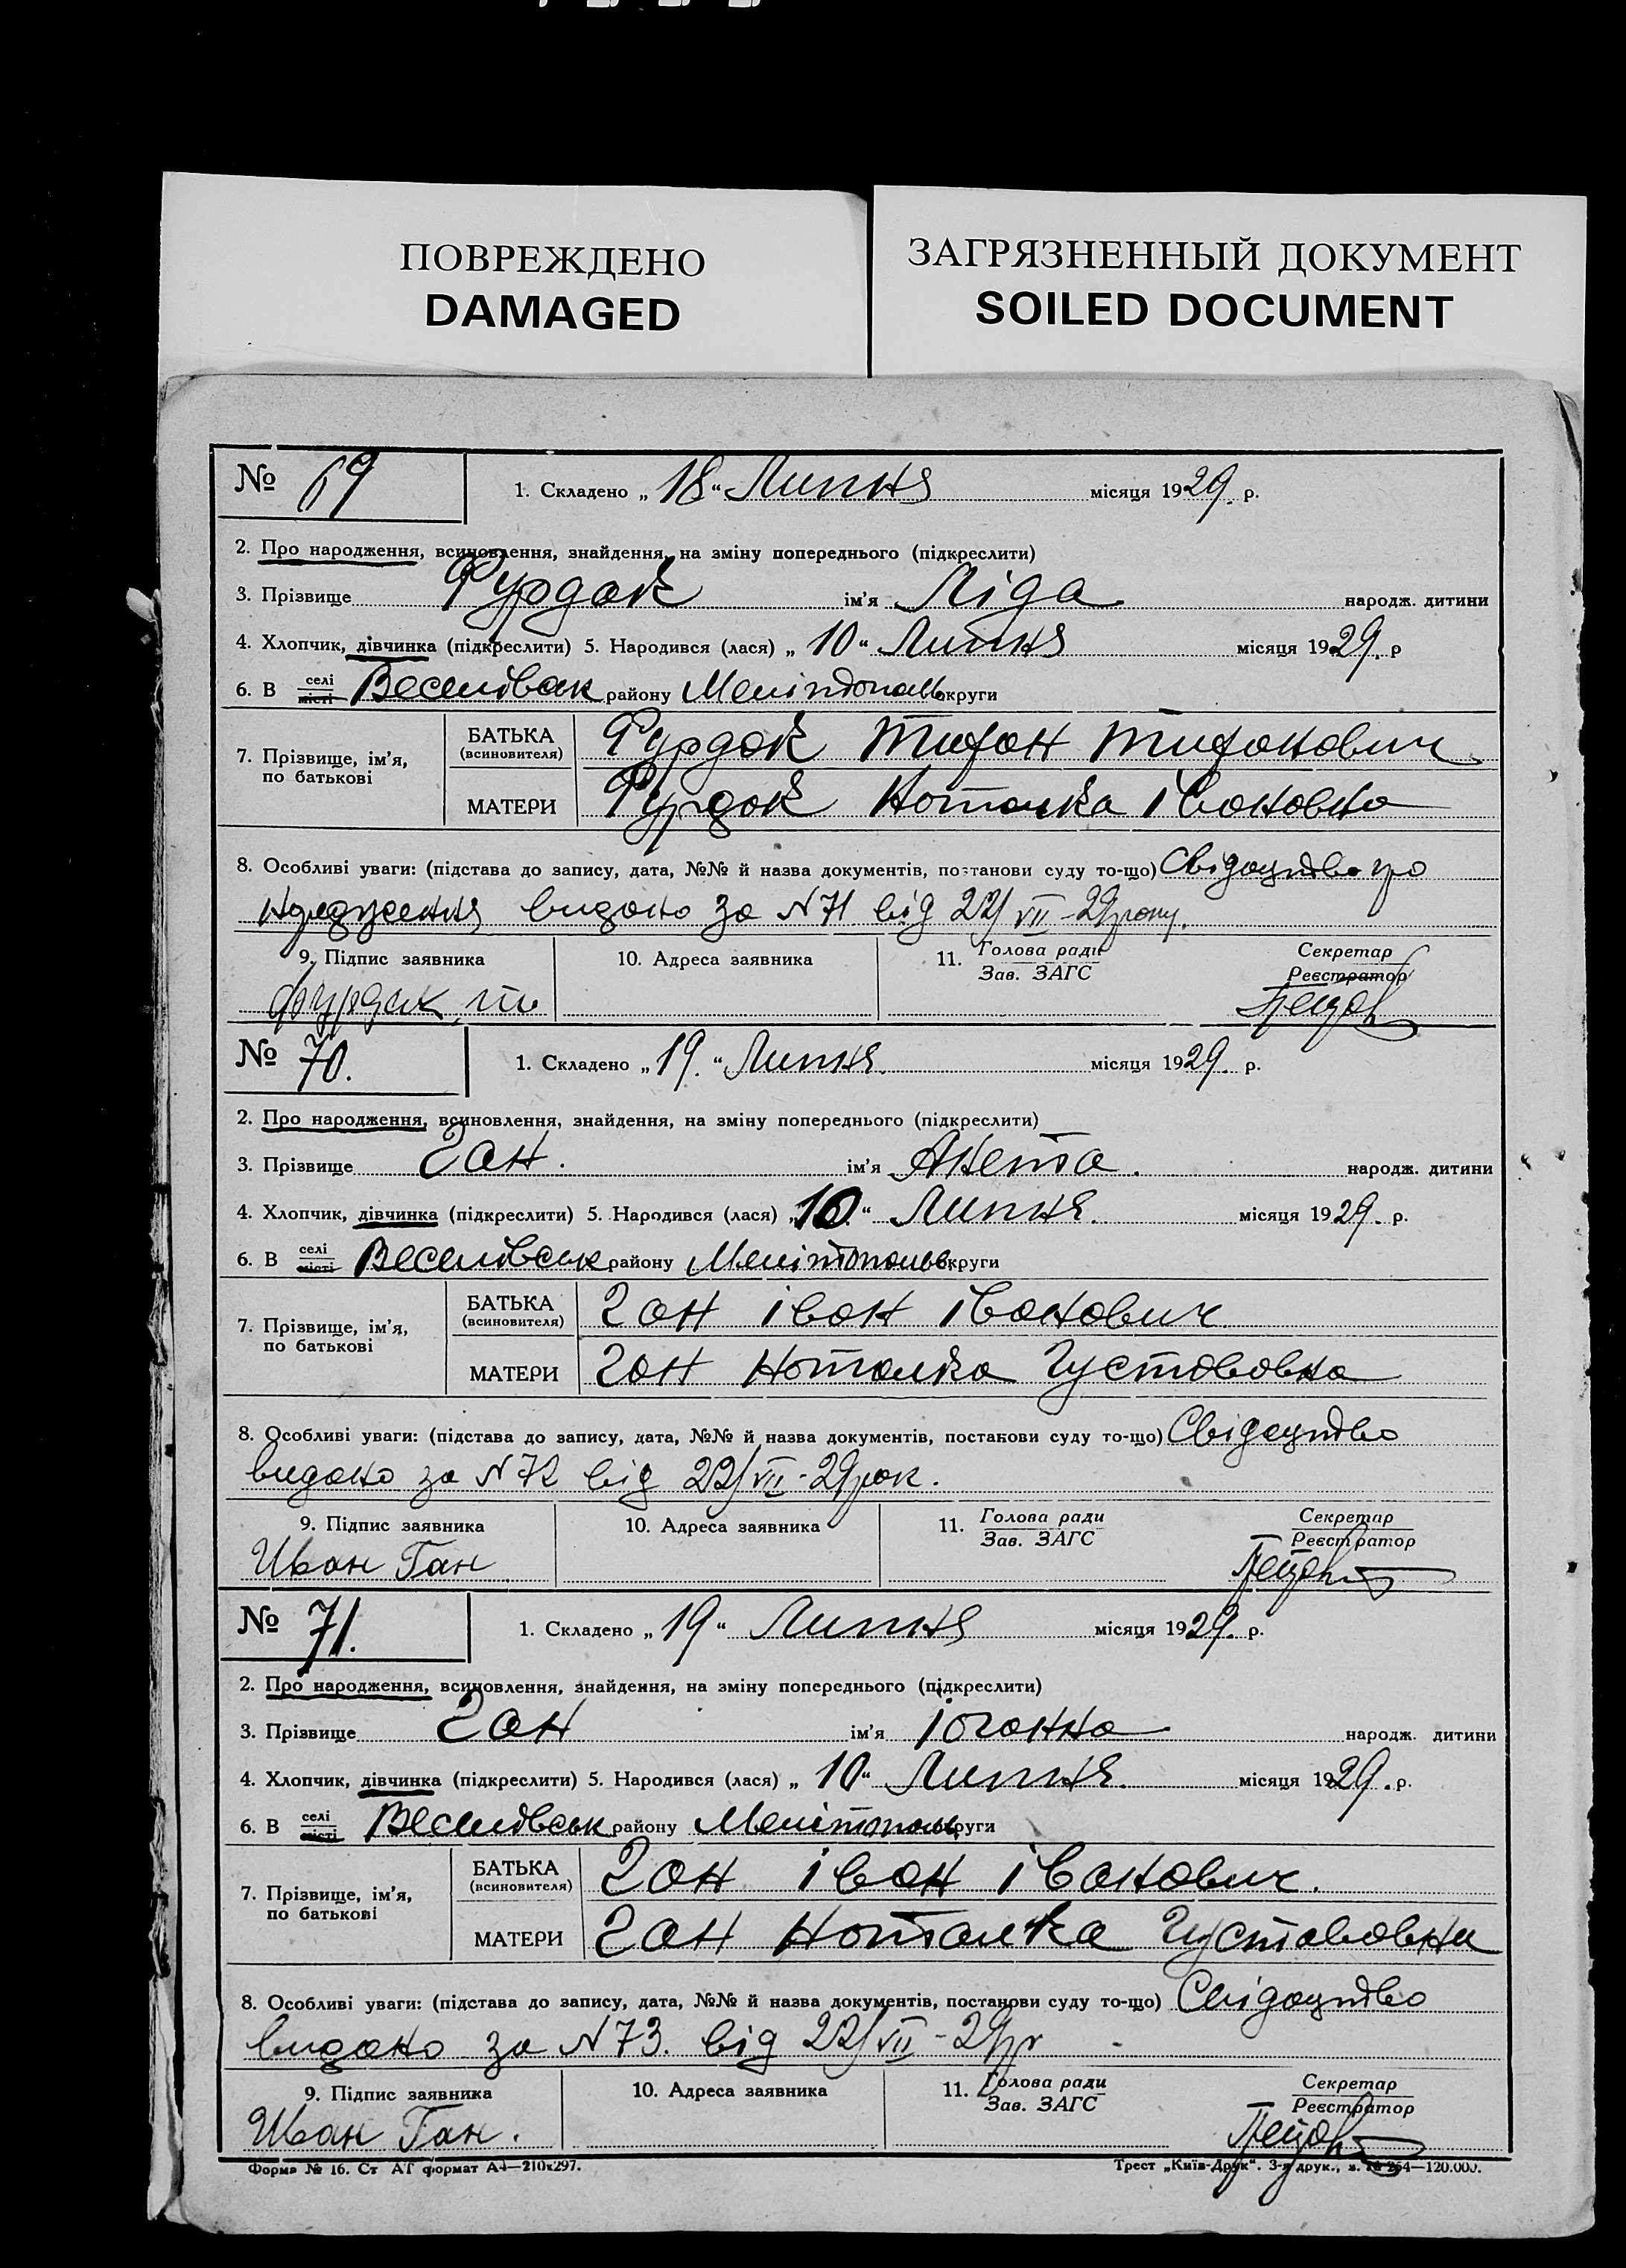 ПОВРЕЖДЕНО
DAMAGED
ЗАГРЯЗНЕННЫЙ ДОКУМЕНТ
SOILED DOCUMENT
№ 69
1. Складено „ 18 “ Липня місяця 1929. р.
2. Про народження, всиновлення, знайдення, на зміну попереднього (підкреслити)
3. Прізвище Фурдак ім’я Ліда народж. дитини
4. Хлопчик, дівчинка (підкреслити) 5. Народився (лася) „ 10 “ Липня місяця 1929. р
6. В селі місті району Мелітополь округи
7. Прізвище, ім’я, по батькові
БАТЬКА (всиновителя) Фурдак
МАТЕРИ Фурдак Наталка Івановна
8. Особливі уваги: (підстава до запису, дата, №№ й назва документів, постанови суду то-що) Свідоцтво про
народження видано за N 71 від 22/VII-29 року.
9. Підпис заявника
10. Адреса заявника
11. Голова ради Зав. ЗАГС
Секретар Реєстратор
Фурдак
№ 70.
1. Складено „ 19. “ Липня. місяця 1929. р.
2. Про народження, всиновлення, знайдення, на зміну попереднього (підкреслити)
3. Прізвище Ган. ім’я Анета. народж. дитини
4. Хлопчик, дівчинка (підкреслити) 5. Народився (лася) „ 10. “ Липня. місяця 1929. р.
6. В селі місті Веселівськ району Мелітополь округи
7. Прізвище, ім’я, по батькові
БАТЬКА (всиновителя) Ган Іван Іванович
МАТЕРИ Ган Наталка Густавовна
8. Особливі уваги: (підстава до запису, дата, №№ й назва документів, постанови суду то-що) Свідоцтво
видано за N 72 від 22/VII-29 рок.
9. Підпис заявника
10. Адреса заявника
11. Голова ради Зав. ЗАГС
Секретар Реєстратор
Иван Ган
№ 71.
1. Складено „ 19 “ Липня місяця 1929. р.
2. Про народження, всиновлення, знайдення, на зміну попереднього (підкреслити)
3. Прізвище Ган ім’я Іоганна народж. дитини
4. Хлопчик, дівчинка (підкреслити) 5. Народився (лася) „ 10 “ Липня. місяця 1929. р.
6. В селі місті Веселівськ району Мелітополь округи
7. Прізвище, ім’я, по батькові
БАТЬКА (всиновителя) Ган Іван Іванович.
МАТЕРИ Ган Наталка Густавовна
8. Особливі уваги: (підстава до запису, дата, №№ й назва документів, постанови суду то-що) Свідоцтво
видано за N 73. від 22/VII-29 р
9. Підпис заявника
10. Адреса заявника
11. Голова ради Зав. ЗАГС
Секретар Реєстратор
Иван Ган.
Форма № 16. Ст АГ формат А4—210х297.
Трест „Київ-Друк“. 3-я друк., з. 254—120.000.